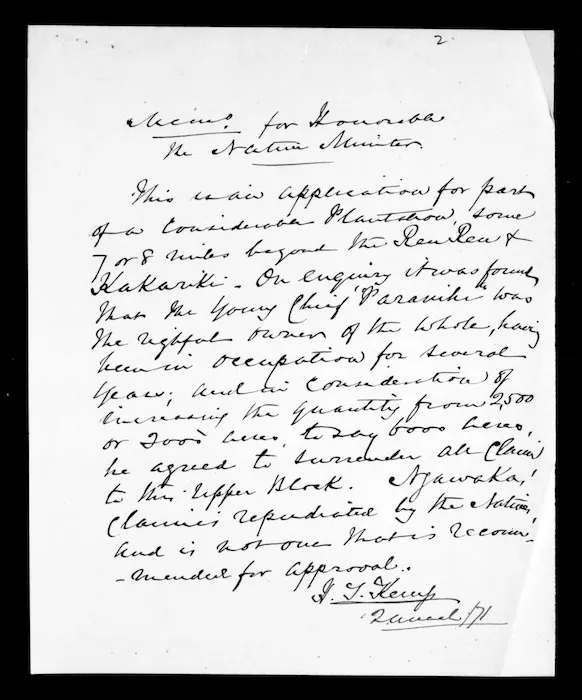 2
Memo. for Honorable
the Native Minister.
This is an application for part
of a Considerable Plantation, some
7 or 8 miles beyond the Reu Reu &
Kakariki - On enquiry it was found
that the Young Chief "Paraniki" was
the rightful owner of the whole, having
been in occupation for several
years; and in Consideration of
increasing the quantity from 2,500
or 3000 Acres, to say 6000 Acres,
he agreed to surrender all Claim
to this Upper Block. Ngawaka's
Claim is repudiated by the Natives,
and is not one that is recom-
-mended for approval.
H. T. Kemp
2 March /71